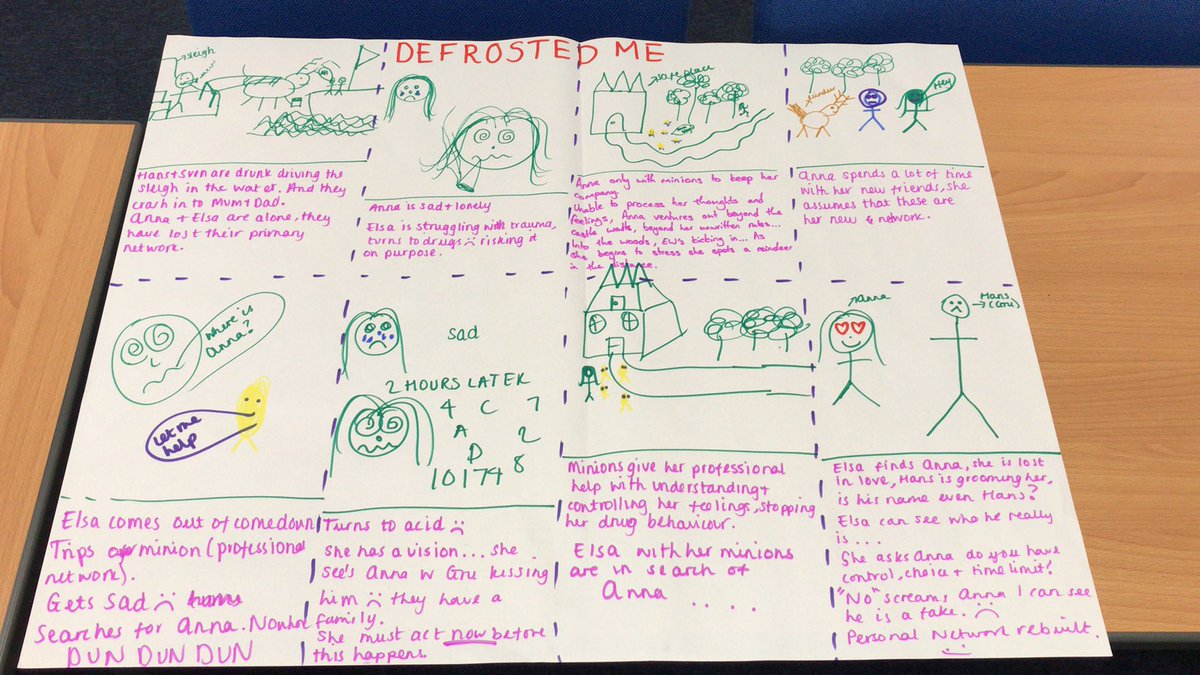 DEFROSTED ME
sleigh
Hans+Sven are drunk driving the
sleigh in the water. And they
crash in to Mum+Dad.
Anna + Elsa are alone, they
have lost their primary
network.
Anna is sad + lonely
Elsa is struggling with trauma,
turns to drugs risking it
on purpose.
safe place
Anna only with minions to keep her
company.
Unable to process her thoughts and
feelings, Anna ventures out beyond the
castle walls, beyond her unwritten rules...
Into the woods, EWS kicking in... As
she begins to stress she spots a reindeer
in the distance.
Hey
Anna spends a lot of time
with her new friends, she
assumes that these are
her new network.
where is
anna?
Let me
help
Elsa comes out of comedown
Trips minion (professional
network).
Gets sad
Searches for Anna.
DUN DUN DUN
sad
2 HOURS LATER
4 C 7
A 2
D 8
10174
Turns to acid
She has a vision... she
see's Anna w Gru kissing
him they have a
family.
She must act now before
this happens.
Minions give her professional
help with understanding +
controlling her feelings, stopping
her drug behaviour.
Elsa with her minions
are in search of
Anna ....
Anna
Hans
Elsa finds Anna, she is lost
in love, Hans is grooming her,
is his name even Hans?
Elsa can see who he really
is ....
She asks Anna do you have
control, choice + time limit!
"No" screams Anna I can see
he is a fake.
Personal Network rebuilt.